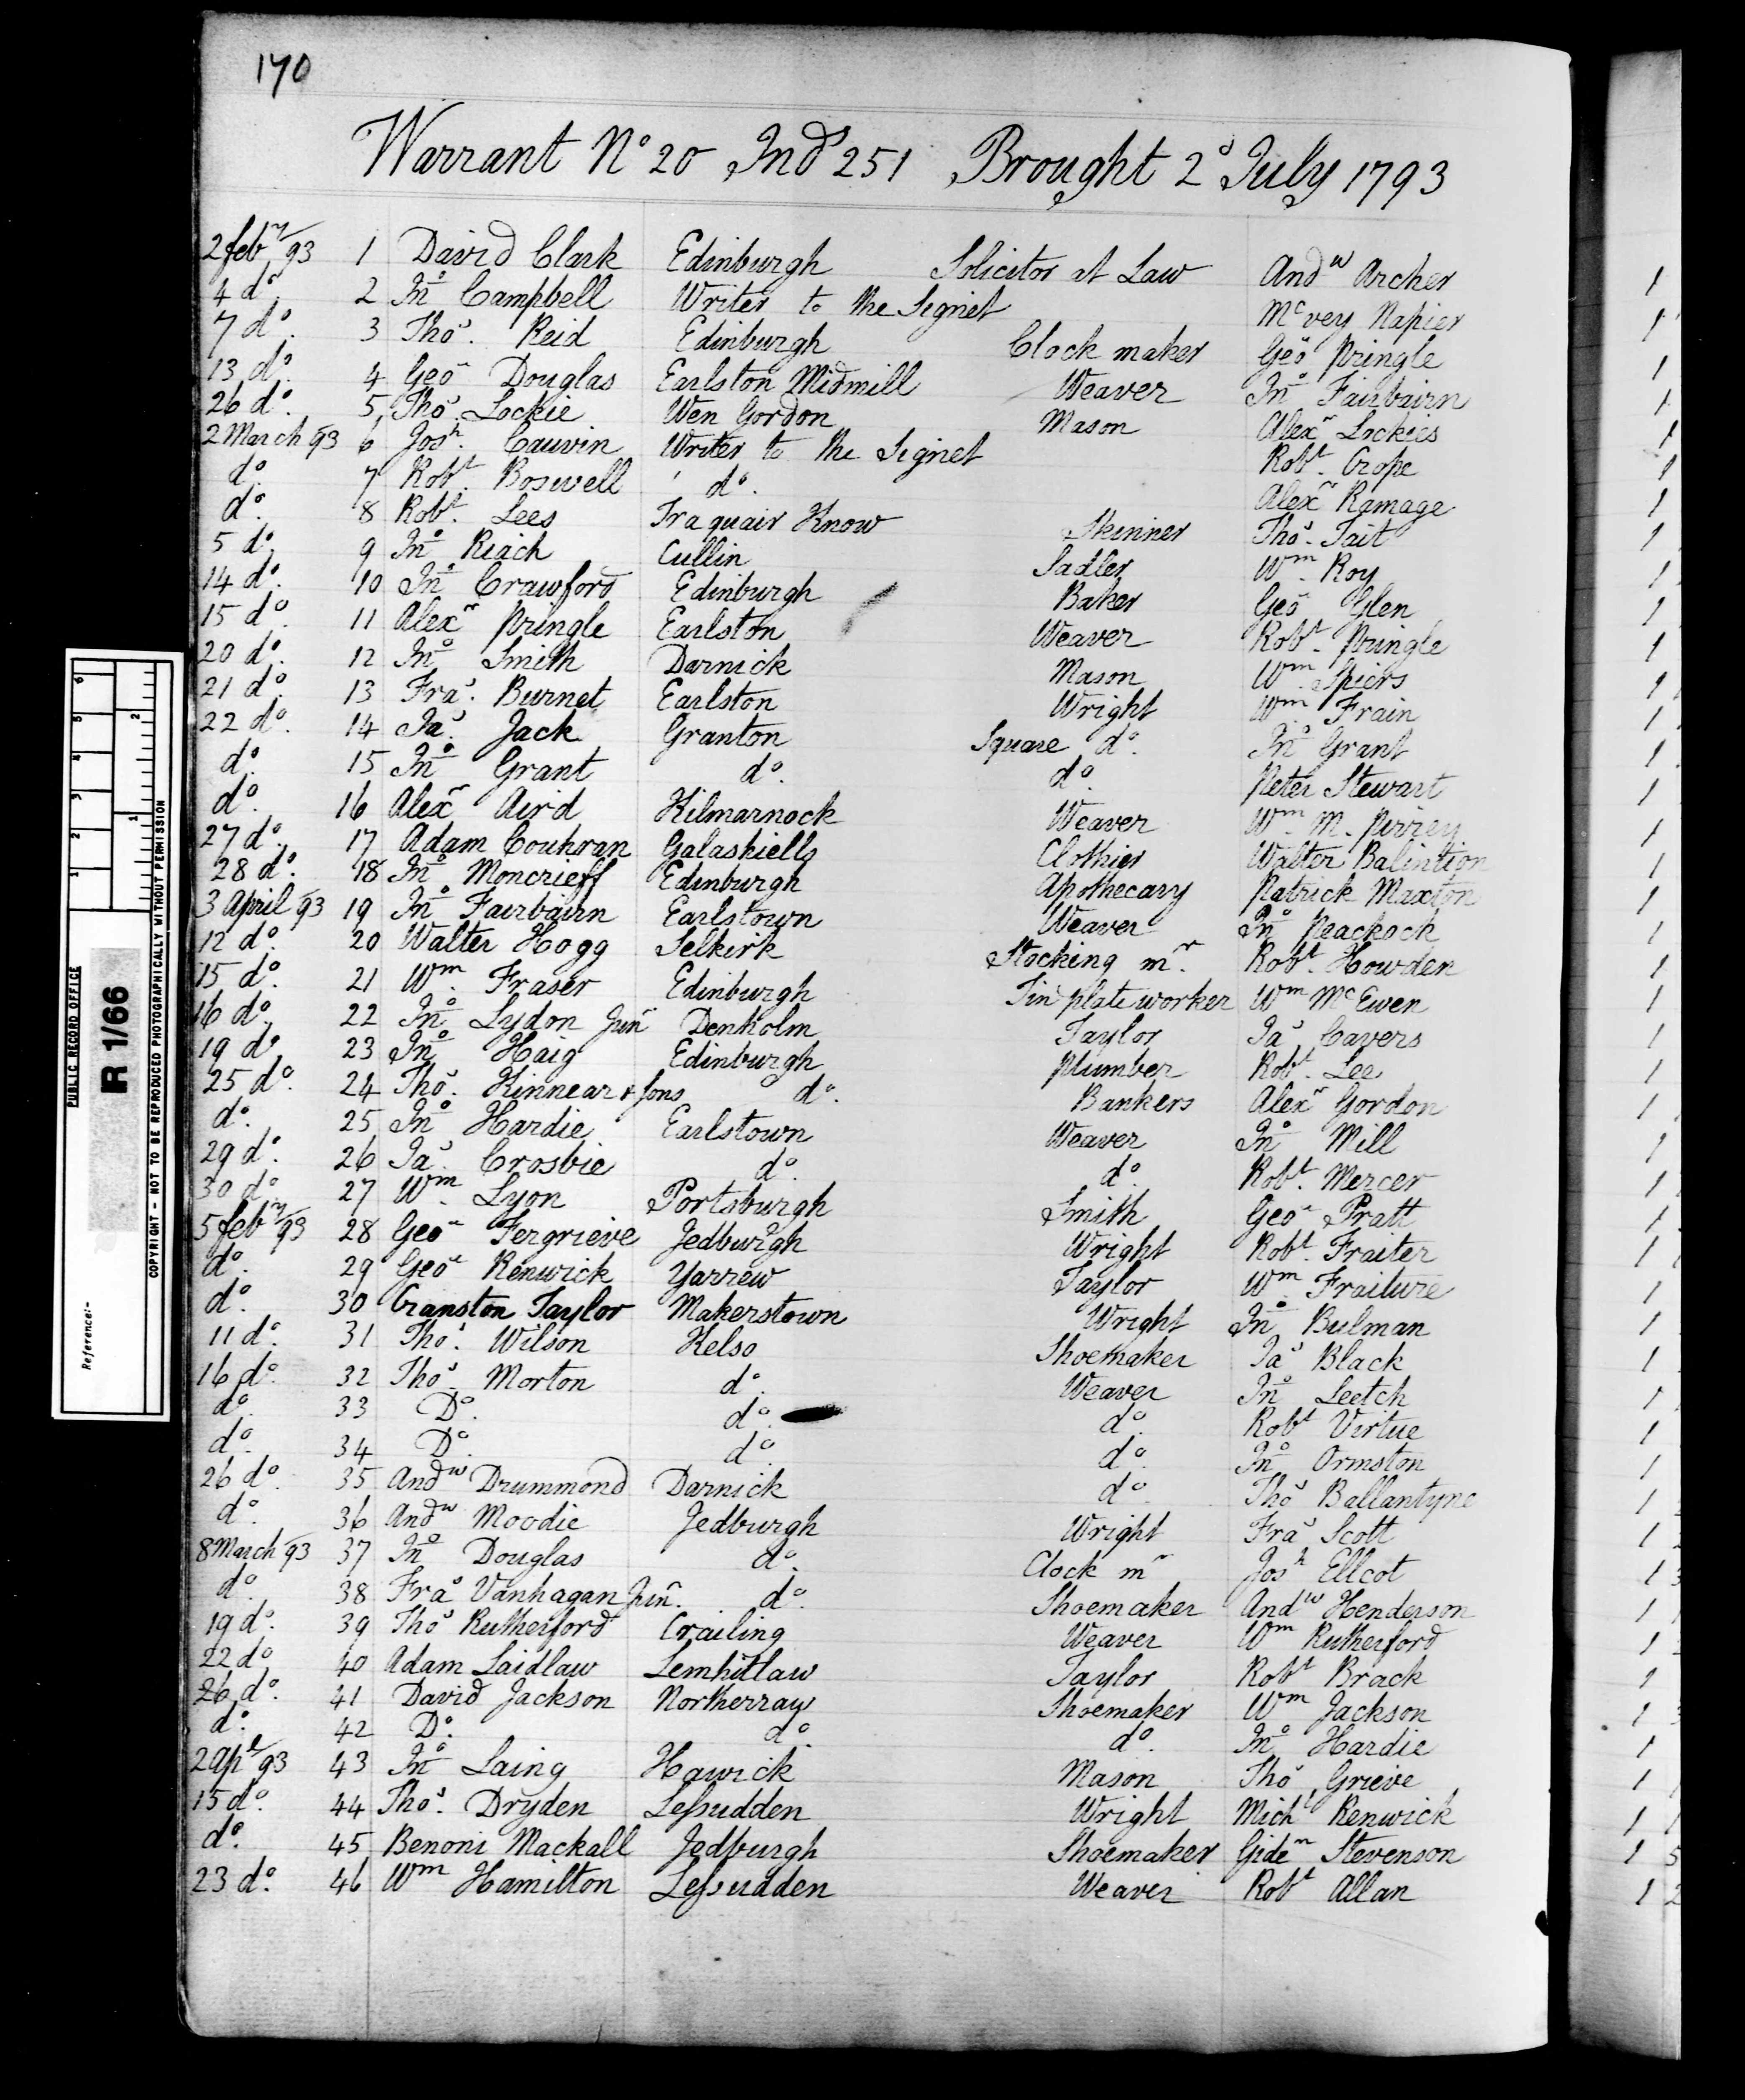 170
Warrant No 20 Inds 251 Brought 2d July 1793
2 feby 93 1 David Clark Edinburgh Solicitor at Law Andw Archer
4 do 2 Jno Campbell Writer to the Signet Mcvey Napier
7 do. 3 Thos. Reid Edinburgh Clock maker Geo Pringle
13 do. 4 Geo Douglas Earlston Midmill Weaver Jno Fairbairn
26 do. 5 Thos. Lockie Wen Gordon Mason Alexr Lockies
2 March 93 6 Josh. Cauvin Writer to the Signet Robt. Crope
do. 7 Robt. Boswell do. Alexr Ramage
do. 8 Robt. Lees Traquair Know Skinner Thos. Tait
5 do. 9 Jno Riach Cullin Sadler Wm. Roy
14 do. 10 Jno Crawford Edinburgh Baker Geo Glen
15 do. 11 Alexr Pringle Earlston Weaver Robt. Pringle
20 do. 12 Jno Smith Darnick Mason Wm. Spiers
21 do. 13 Fras. Burnet Earlston Wright Wm. Frain
22 do. 14 Jas. Jack Granton Square do. Jno Grant
do. 15 Jno Grant do. do. Peter Stewart
do. 16 Alexr Aird Kilmarnock Weaver Wm. M. Pirrey
27 do. 17 Adam Couhran Galashiells Clothier Walter Balintion
28 do. 18 Jno Moncrieff Edinburgh Apothecary Patrick Maxton
3 April 93 19 Jno Fairbairn Earlstown Weaver Jno Peackock
12 do. 20 Walter Hogg Selkirk Stocking mr. Robt. Howden
15 do. 21 Wm. Fraser Edinburgh Tin plate worker Wm McEwen
16 do. 22 Jno Lydon Junr Denholm Taylor Jas Cavers
19 do 23 Jno Haig Edinburgh Plumber Robt. Lee
25 do. 24 Thos. Kinnear & Sons do. Bankers Alexr Gordon
do. 25 Jno Hardie Earlstown Weaver Jno Mill
29 do. 26 Jas. Crosbie do. do. Robt. Mercer
30 do 27 Wm. Lyon Portsburgh Smith Geo Pratt
5 feby 93 28 Geo Fergrieve Jedburgh Wright Robt. Fraiter
do. 29 Geo Renwick Yarrew Taylor Wm. Fraiture
do. 30 Cranston Taylor Makerstown Wright Jno Bulman
11 do. 31 Thos. Wilson Kelso Shoemaker Jas Black
16 do. 32 Thos Morton do. Weaver Jno Leetch
do. 33 Do. do. do. Robt Virtue
do. 34 Do. do. do. Jno Ormston
26 do. 35 Andw Drummond Darnick do. Thos Ballantyne
do. 36 Andw Moodie Jedburgh Wright Fras Scott
8 March 93 37 Jno Douglas do. Clock mr Josh Ellcot
do. 38 Fras Vanhagan Junr. do. Shoemaker Andw Henderson
19 do. 39 Thos Rutherford Crailing Weaver Wm Rutherford
22 do 40 Adam Laidlaw Lemhitlaw Taylor Robt Brack
26 do. 41 David Jackson Northerray Shoemaker Wm Jackson
do. 42 Do. do. do. Jno Hardie
2 Apl 93 43 Jno Laing Hawick Mason Thos Grieve
15 do. 44 Thos. Dryden Lessudden Wright Michl Renwick
do. 45 Benoni Mackall Jedburgh Shoemaker Giden Stevenson
23 do. 46 Wm Hamilton Lessudden Weaver Robt Allan
PUBLIC RECORD OFFICE
R 1/66
Reference:-
COPYRIGHT - NOT TO BE REPRODUCED PHOTOGRAPHICALLY WITHOUT PERMISSION